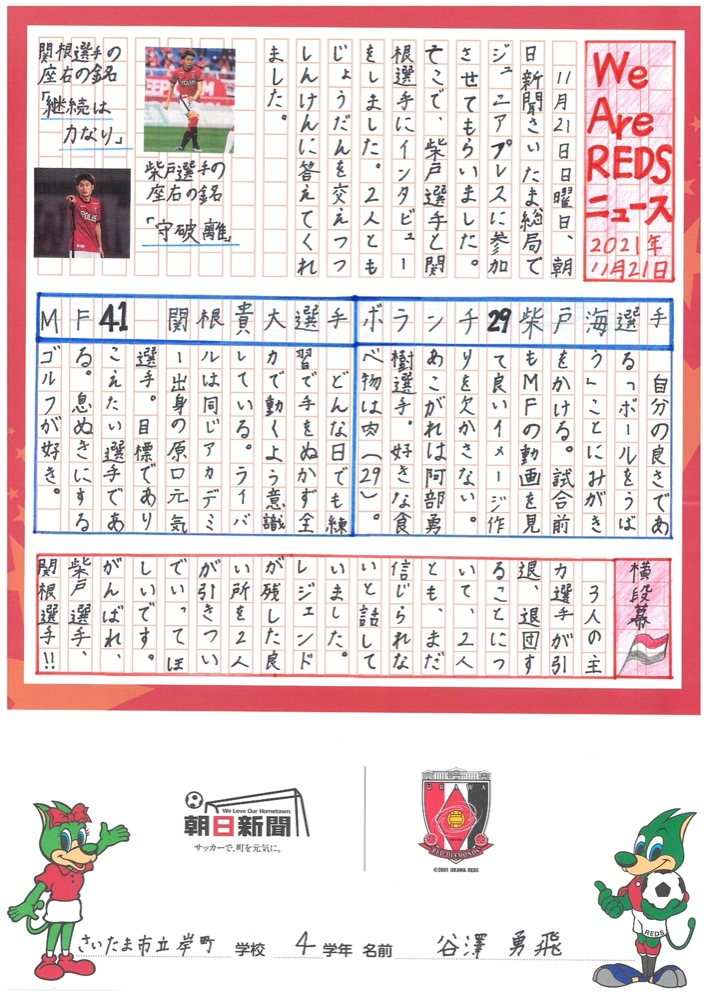 We
Are
REDS
ニュース
2021年
11月21日
11月21日日曜日、朝
日新聞さいたま総局で
ジュニアプレスに参加
させてもらいました。
そこで、柴戸選手と関
根選手にインタビュー
をしました。2人とも
じょうだんを交えつつ
しんけんに答えてくれ
ました。
関根選手の
座右の銘
「継続は
力なり」
柴戸選手の
座右の銘
「守破離」
ボランチ29柴戸海選手
自分の良さであ
る「ボールをうば
う」ことにみがき
をかける。試合前
もMFの動画を見
て良いイメージ作
りを欠かさない。
あこがれは阿部勇
樹選手。好きな食
べ物は肉(29)。
MF41関根貴大選手
どんな日でも練
習で手をぬかず全
力で動くよう意識
している。ライバ
ルは同じアカデミ
ー出身の原口元気
選手。目標であり
こえたい選手であ
る。息ぬきにする
ゴルフが好き。
横段幕
3人の主
力選手が引
退、退団す
ることにつ
いて、2人
とも、まだ
信じられな
いと話して
いました。
レジェンド
が残した良
い所を2人
が引きつい
でいってほ
しいです。
がんばれ、
柴戸選手、
関根選手!!
We Love Our Hometown.
朝日新聞
サッカーで、町を元気に。
URAWA
RED DIAMONDS
©2001 URAWA REDS
REDS
さいたま市立岸町 学校 4 学年 名前 谷澤 勇飛